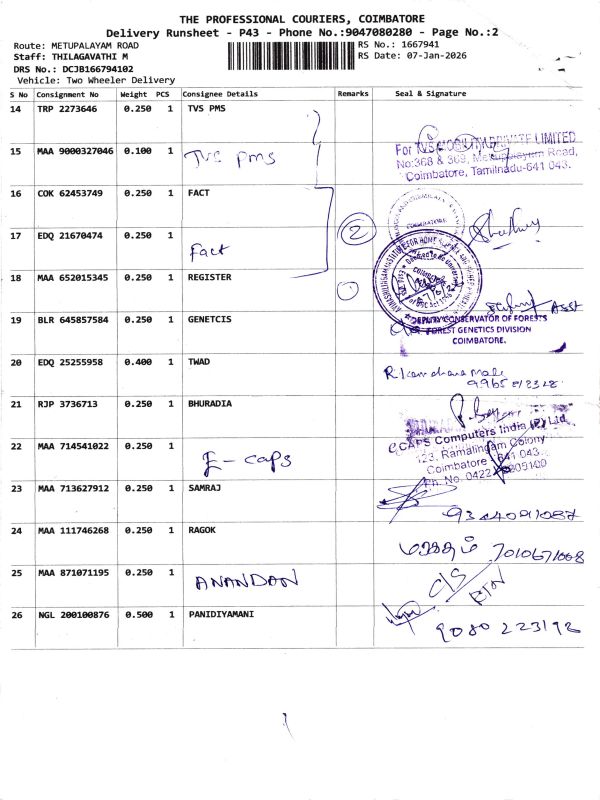 THE PROFESSIONAL COURIERS, COIMBATORE
Delivery Runsheet - P43 - Phone No.:9047080280 - Page No.:2
Route: METUPALAYAM ROAD
RS No.: 1667941
Staff: THILAGAVATHI M
RS Date: 07-Jan-2026
DRS No.: DCJB166794102
Vehicle: Two Wheeler Delivery
S No Consignment No Weight PCS Consignee Details Remarks Seal & Signature
14 TRP 2273646 0.250 1 TVS PMS
15 MAA 9000327046 0.100 1 TVS PMS
For TVS MOBILITY PRIVATE LIMITED
No:368 & 369, Mettupalayam Road,
Coimbatore, Tamilnadu-641 043.
16 COK 62453749 0.250 1 FACT
17 EDQ 21670474 0.250 1 Fact
2
COIMBATORE
18 MAA 652015345 0.250 1 REGISTER
19 BLR 645857584 0.250 1 GENETCIS
Asst
DEPUTY CONSERVATOR OF FORESTS
FOREST GENETICS DIVISION
COIMBATORE.
20 EDQ 25255958 0.400 1 TWAD
21 RJP 3736713 0.250 1 BHURADIA
22 MAA 714541022 0.250 1 E-caps
CAPS Computers India (P) Ltd
123, Ramalingam Colony
Coimbatore - 641 043.
Ph. No. 0422
23 MAA 713627912 0.250 1 SAMRAJ
24 MAA 111746268 0.250 1 RAGOK
25 MAA 871071195 0.250 1 ANANDAN
C/S
26 NGL 200100876 0.500 1 PANIDIYAMANI
9080 223192